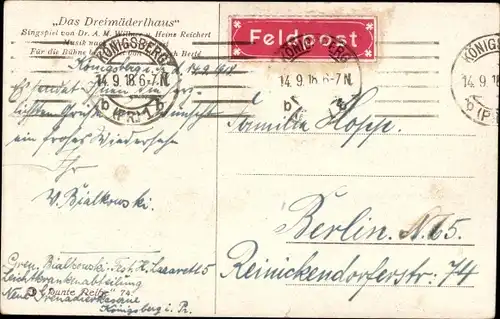 „Das Dreimäderlhaus"
Singspiel von Dr. A. M. Willner u. Heinz Reichert
Musik nach
Für die Bühne von Berté
Feldpost
KÖNIGSBERG
14.9.18.6-7N.
b (PR.) 1 b
KÖNIGSBERG
14.9.18.6-7N.
b
KÖNIGSBERG
14.9.
b (PR.)
Königsberg i. 14.9.1918
Es sendet Ihnen die herz-
lichsten Grüße
ein frohes Wiedersehen
Ihr
V. Bialkowski.
Familie Hopp.
Berlin. N. 65.
Reinickendorferstr. 74
Gren. Bialkowski. Fest. H. Lazarett 5
Leichtkrankenabteilung
Neue Grenadierkaserne
„Bunte Reihe" 74.
Königsberg i. Pr.